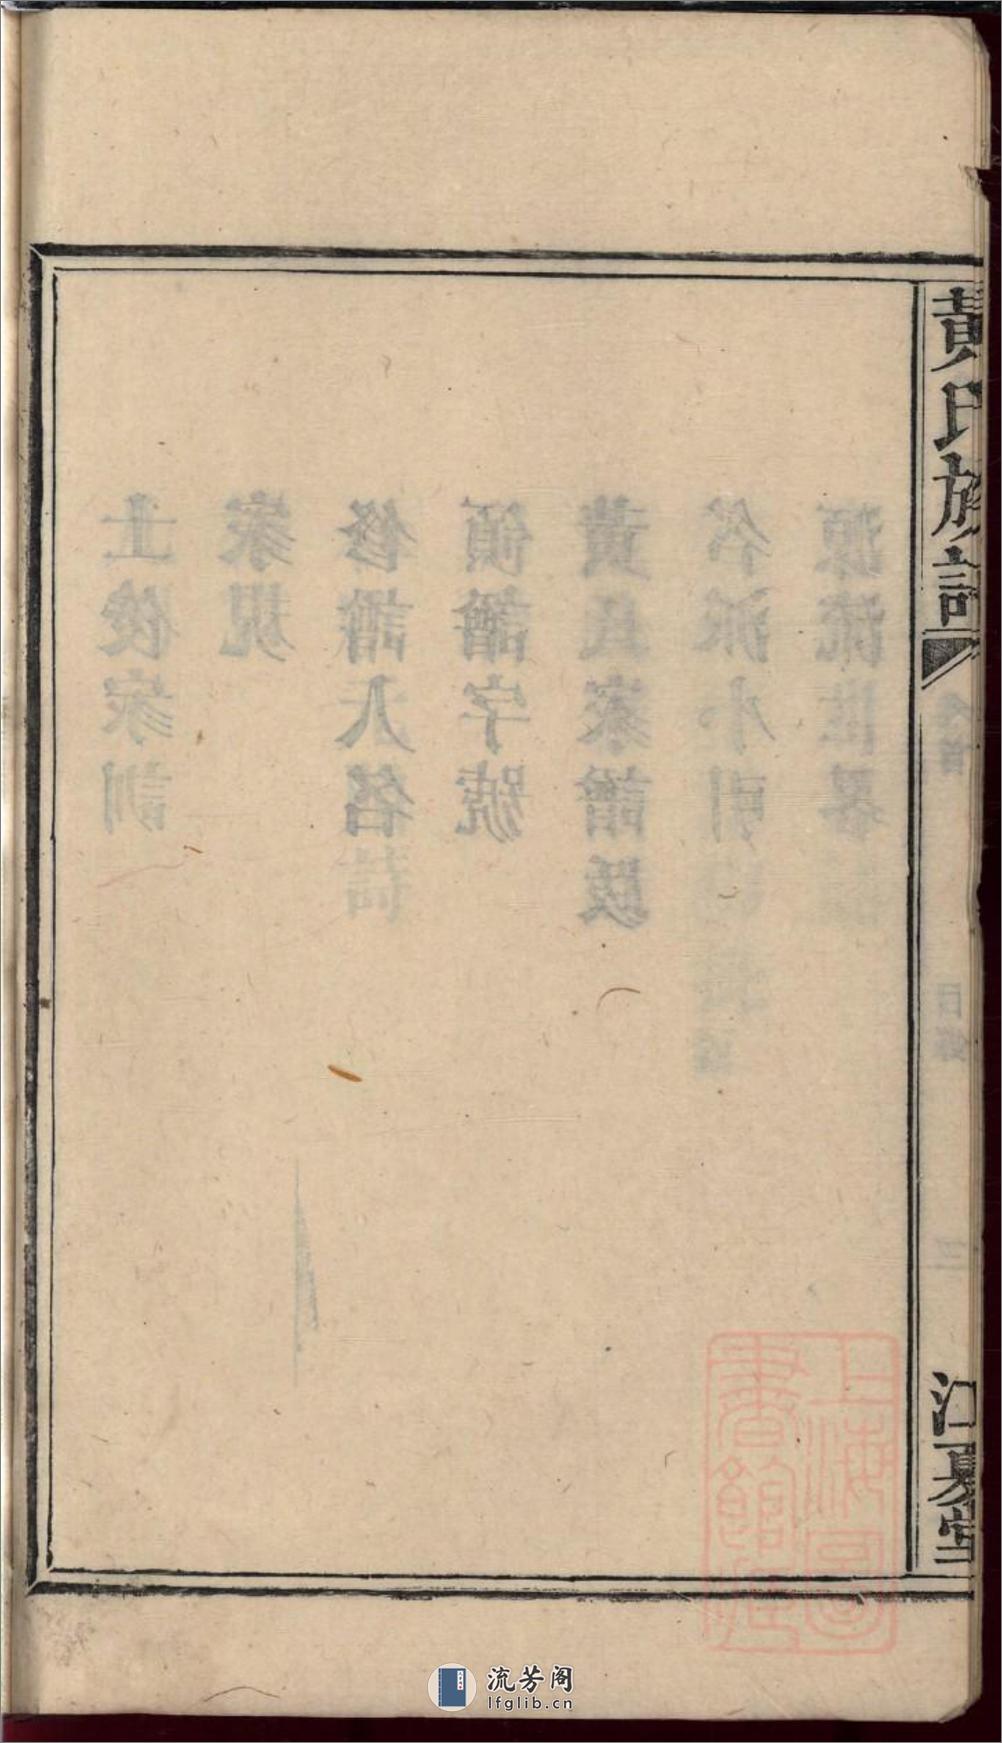 黃氏族譜
江夏堂
源流世畧
分派小引
黃氏家譜跋
領譜字號
修譜人名
家規
士俊家訓
卷首
目錄
三
上海圖書館藏
流芳阁
lfglib.cn